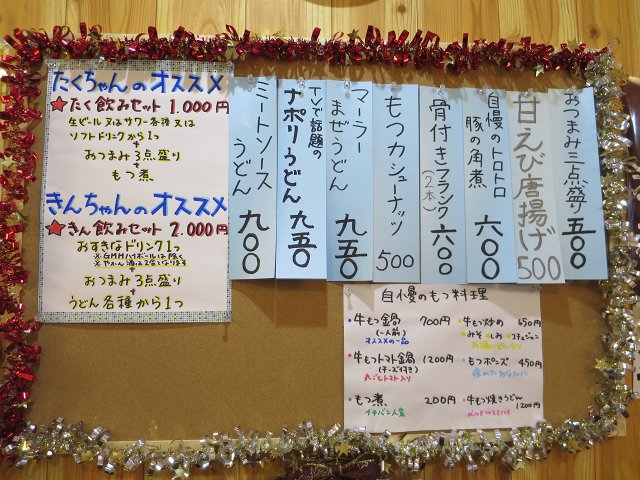 たくちゃんのオススメ
★たく飲みセット 1.000円
生ビール又はサワー各種又は
ソフトドリンクから1つ
+
おつまみ3点盛り
+
もつ煮
きんちゃんのオススメ
★きん飲みセット 2.000円
おすきなドリンク1つ
※GMMハイボールは除く
+
おつまみ3点盛り
+
うどん各種から1つ
おつまみ三点盛り 五〇〇
甘えび唐揚げ 500
自慢のトロトロ
豚の角煮 六〇〇
骨付きフランク(2本) 六〇〇
もつカシューナッツ 500
マーラー
まぜうどん 九五〇
TVで話題の
ナポリうどん 九五〇
ミートソース
うどん 九〇〇
自慢のもつ料理
・牛もつ鍋 700円
(一人前)
オススメの一品
・牛もつトマト鍋 1200円
(チーズ付き)
丸ごとトマト入り
・もつ煮 200円
イチバン人気
・牛もつ炒め 650円
・みそ・しお・コチュジャン
・もつポンズ 450円
疲れたあなたに
・牛もつ焼きうどん
1200円